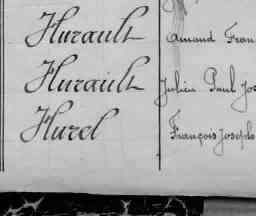 Hurault Amand Fran
Hurault Julien Paul Jos
Hurel François Joseph